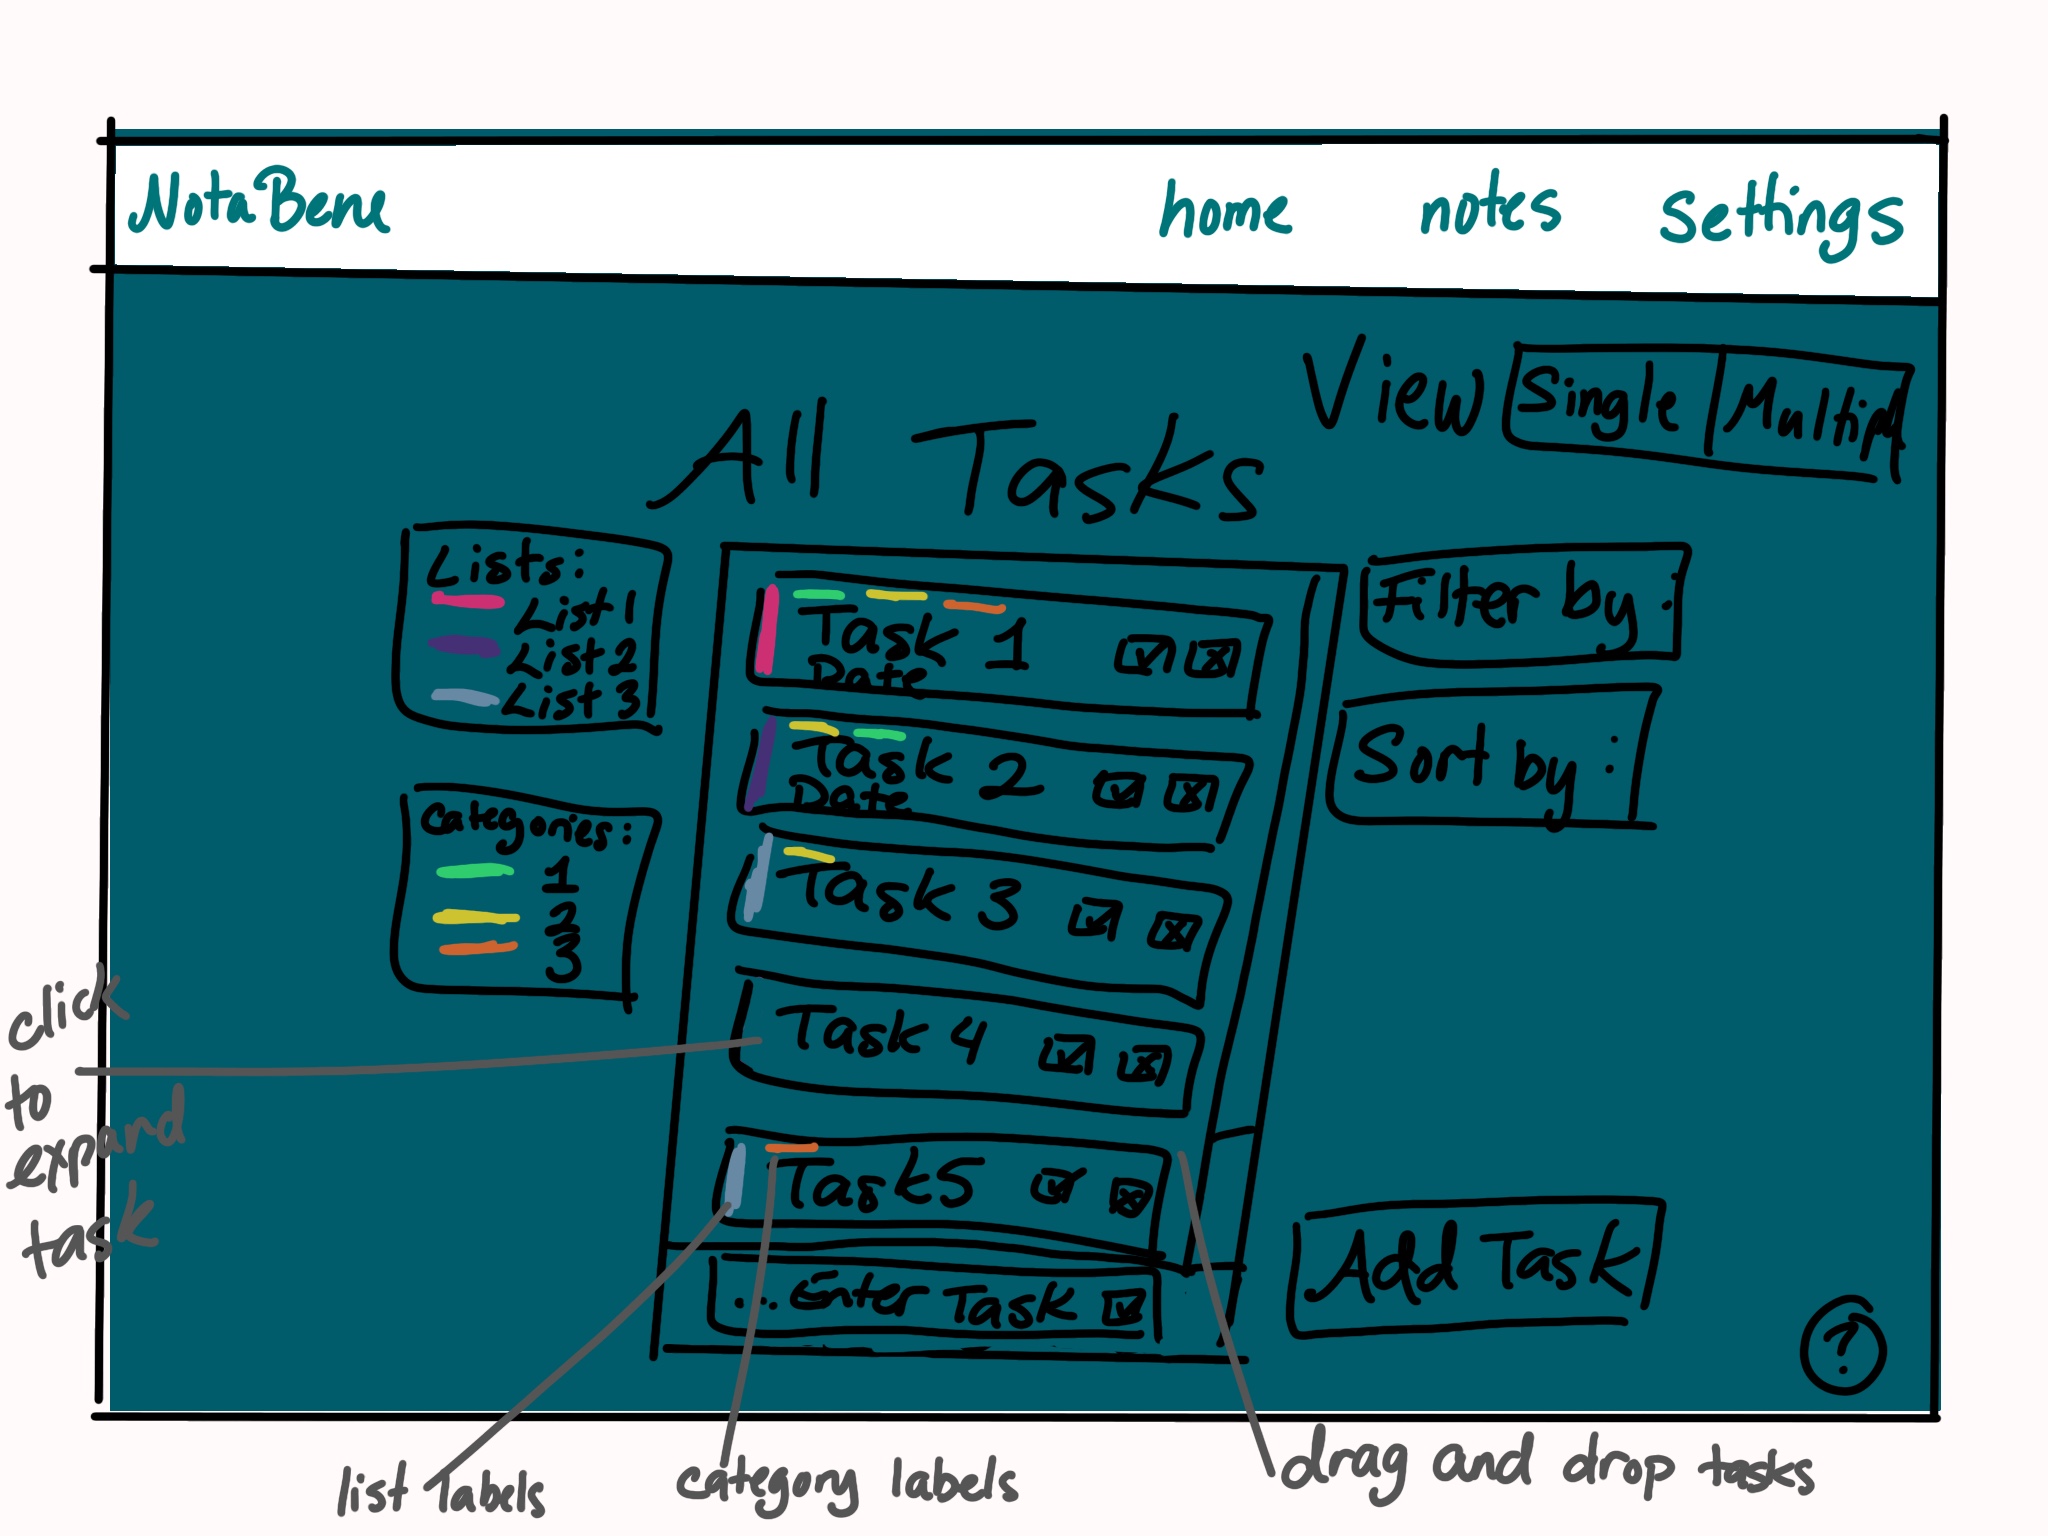 NotaBene home notes settings
View Single Multipl
All Tasks
Lists:
List 1
List 2
List 3
Categories:
1
2
3
Task 1
Date
Task 2
Date
Task 3
Task 4
Task 5
... Enter Task
Filter by :
Sort by :
Add Task
?
click
to
expand
task
list labels
category labels
drag and drop tasks